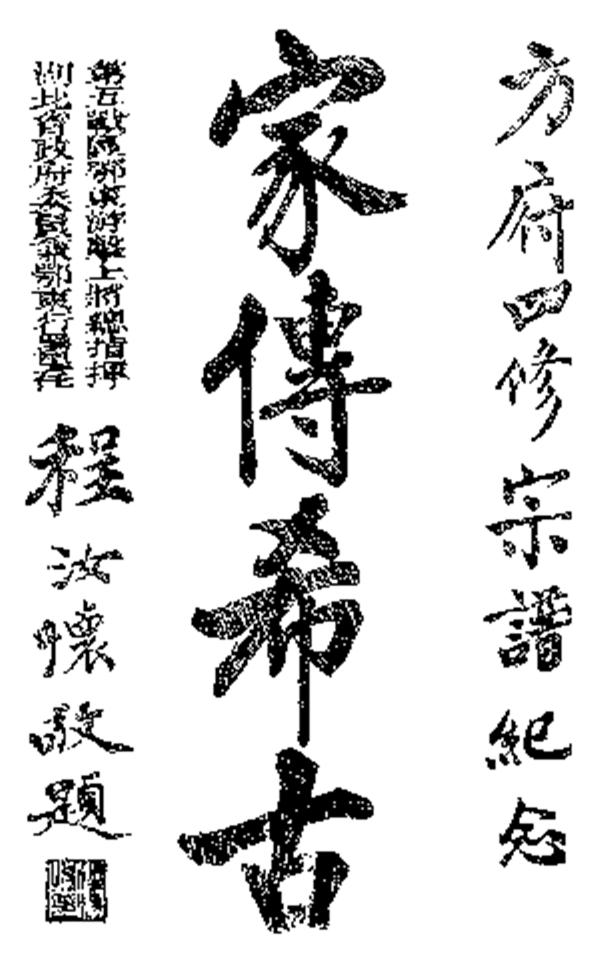 方府四修宗譜紀念
家傳希古
第五戰區鄂東游擊上將總指揮
湖北省政府委員兼鄂東行署主任
程汝懷敬題